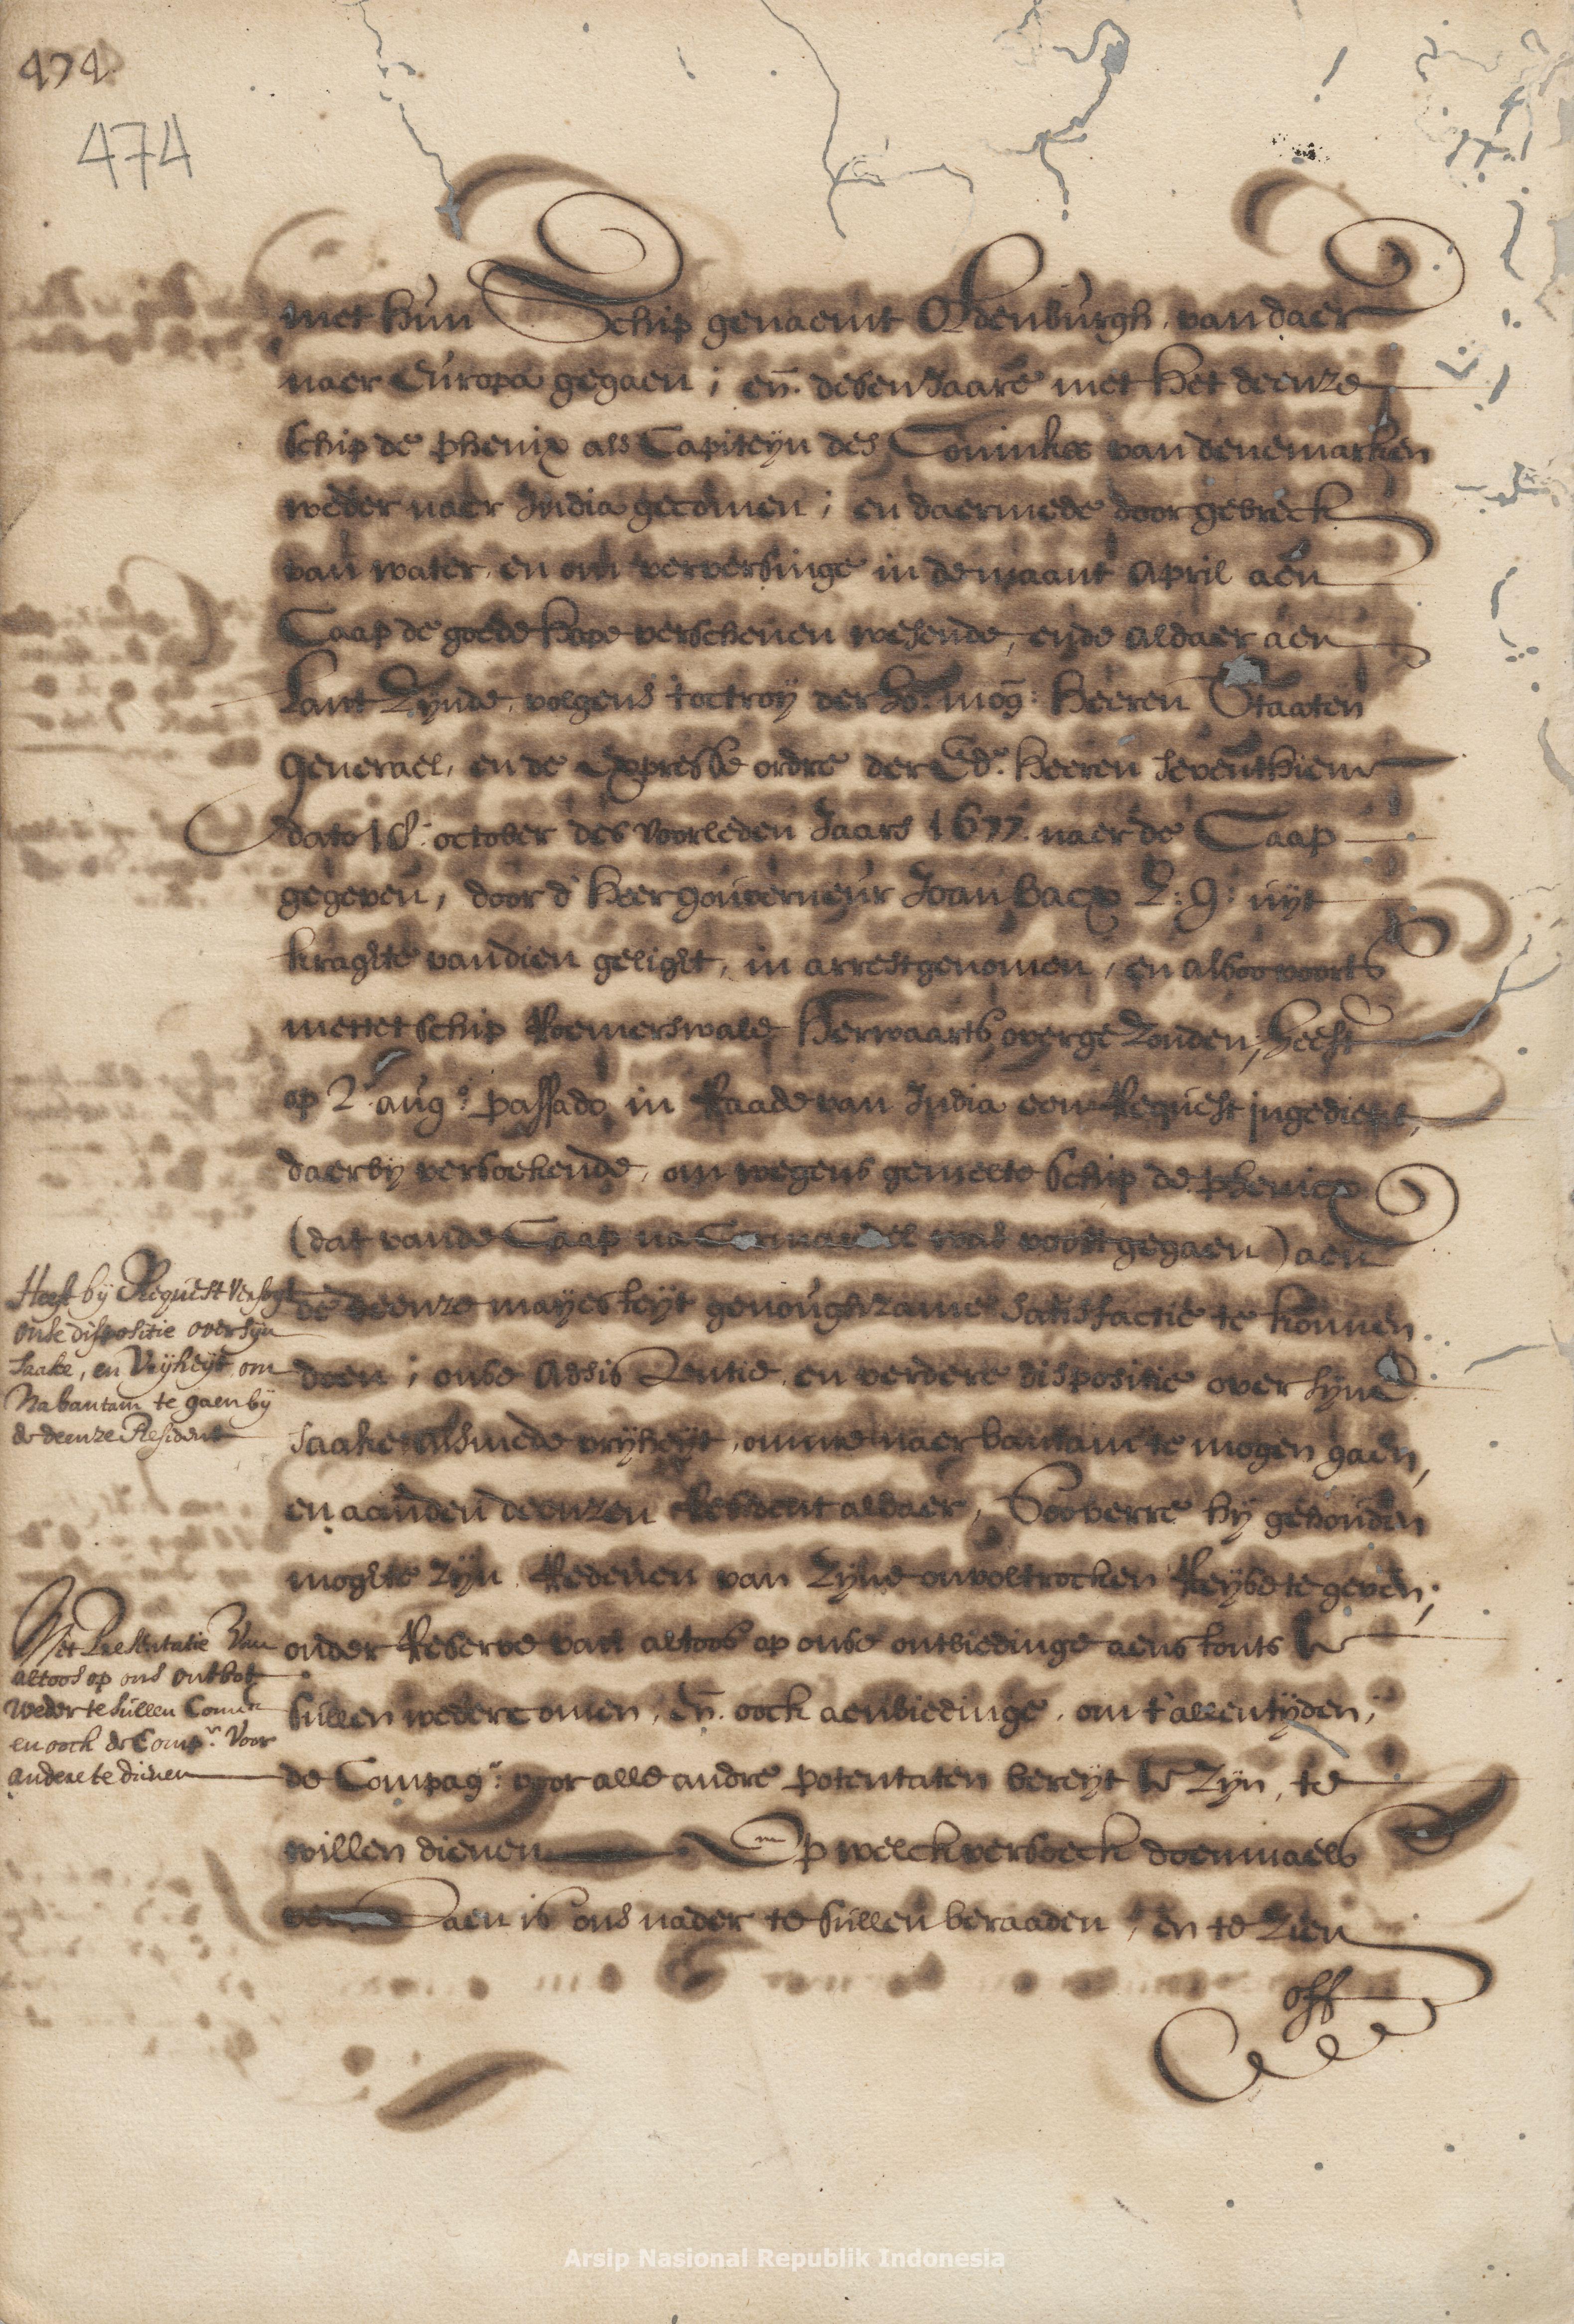 474.
474
met hun Schip genaemt Oldenburgh, van daer
naer Europa gegaen; en̄. desen Jaare met het deenze
schip de phenix als Capiteyn des Coninks van denemarken
weder naer India gecomen; en daermede door gebreck
van water, en om verversinge in de maant April aen
Caap de goede hope verschenen wesende, ende aldaer aen
Lant Zynde, volgens t'octroy der Ho: mog: Heeren Staaten
generael, en de Expresse ordre der Ed.e Heeren Seventhiene
dato 18: october des voorleden Jaars 1677. naer de Caap
gegeven, door d' heer gouverneur Joan Bacx L: G: uyt
kraghte van dien gelight, in arrest genomen, en alsoo voorts
mettet schip Roemerswale herwaarts overgezonden; heeft
op 2.e aug:o passado in Raade van India een Request ingedient,
daerby versoekende, om wegens gemelte schip de phenix
(dat van de Caap na Cormandel was voortgegaen) aen
de deenze mayesteyt genoughzame satisfactie te konnen
doen; onse Adsistentie, en verdere dispositie over syne
saake alsmede vryheyt, omme naer bantam te mogen gaen,
en aan den deenzen Resident aldaer, Soo verre hy gehouden
moghte zyn Redenen van zyne onvoltrocken Reyse te geven;
onder Reserve van altoos op onse ontbiedinge aenstonts
sullen wedercomen, en̄. oock aenbiedinge, om t'allentyden,
de Compag:e voor alle andre potentaten bereyt zyn, te
willen dienen Op welck versoeck doenmaels
verstaen is ons nader te sullen beraaden, en te zien
off
Heeft by Request versogt
onse dispositie over syn
saake, en Vryheyt om
Na bantam te gaen by
de deenze Resident
Met Presentatie Van
altoos op ons ontbot
weder te sullen Comen
en oock de Comp:e Voor
andere te dienen
Arsip Nasional Republik Indonesia